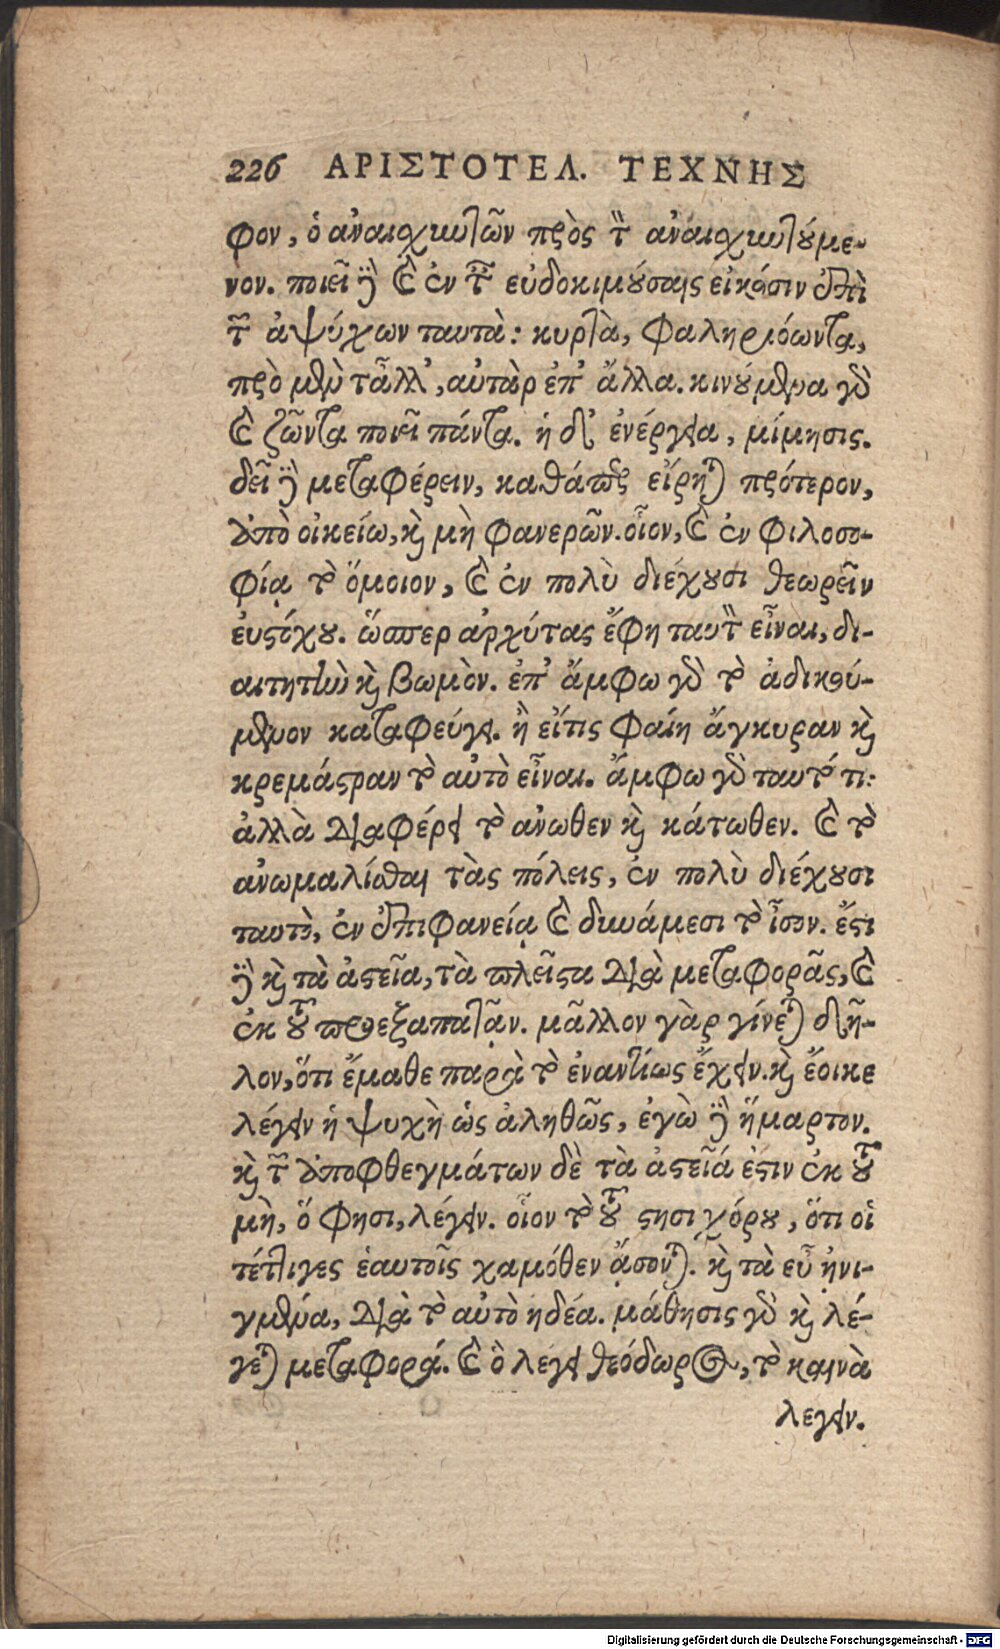 226 ΑΡΙΣΤΟΤΕΛ. ΤΕΧΝΗΣ
φον, ὁ ἀναισχυντῶν πρὸς τὸν ἀναισχυντούμε-
νον. ποιεῖ δὲ καὶ ἐν ταῖς εὐδοκιμούσαις εἰκόσιν ἐπὶ
τῶν ἀψύχων ταυτὰ: κυρτὰ, φαληριόωντα,
πρὸ μὲν τἄλλ', αὐτὰρ ἐπ' ἄλλα. κινούμενα γὰρ
καὶ ζῶντα ποιεῖ πάντα. ἡ δ' ἐνέργεια, μίμησις.
δεῖ δὲ μεταφέρειν, καθάπερ εἴρηται πρότερον,
ἀπὸ οἰκείων, καὶ μὴ φανερῶν. οἷον, καὶ ἐν φιλοσο-
φίᾳ τὸ ὅμοιον, καὶ ἐν πολὺ διέχουσι θεωρεῖν
εὐστόχου. ὥσπερ ἀρχύτας ἔφη ταυτὸν εἶναι, δι-
αιτητὴν καὶ βωμὸν. ἐπ' ἄμφω γὰρ τὸ ἀδικού-
μενον καταφεύγει. ἢ εἴτις φαίη ἄγκυραν καὶ
κρεμάστραν τὸ αὐτὸ εἶναι. ἄμφω γὰρ ταυτό τι:
ἀλλὰ διαφέρει τὸ ἄνωθεν καὶ κάτωθεν. καὶ τὸ
ἀνωμαλίσθαι τὰς πόλεις, ἐν πολὺ διέχουσι
ταυτὸ, ἐν ἐπιφανείᾳ καὶ δυνάμεσι τὸ ἶσον. ἔστι
δὲ καὶ τὰ ἀστεῖα, τὰ πλεῖστα διὰ μεταφορᾶς, καὶ
ἐκ τοῦ προεξαπατᾷν. μᾶλλον γὰρ γίνεται δῆ-
λον, ὅτι ἔμαθε παρὰ τὸ ἐναντίως ἔχειν. καὶ ἔοικε
λέγειν ἡ ψυχὴ ὡς ἀληθῶς, ἐγὼ δὲ ἥμαρτον.
καὶ τῶν ἀποφθεγμάτων δὲ τὰ ἀστεῖά ἐστιν ἐκ τοῦ
μὴ, ὅ φησι, λέγειν. οἷον τὸ τοῦ στησιχόρου, ὅτι οἱ
τέττιγες ἑαυτοῖς χαμόθεν ᾄσονται. καὶ τὰ εὖ ᾐνι-
γμένα, διὰ τὸ αὐτὸ ηδέα. μάθησις γὰρ καὶ λέ-
γεται μεταφορά. καὶ ὃ λέγει θεόδωρος, τὸ καινὰ
λέγειν.